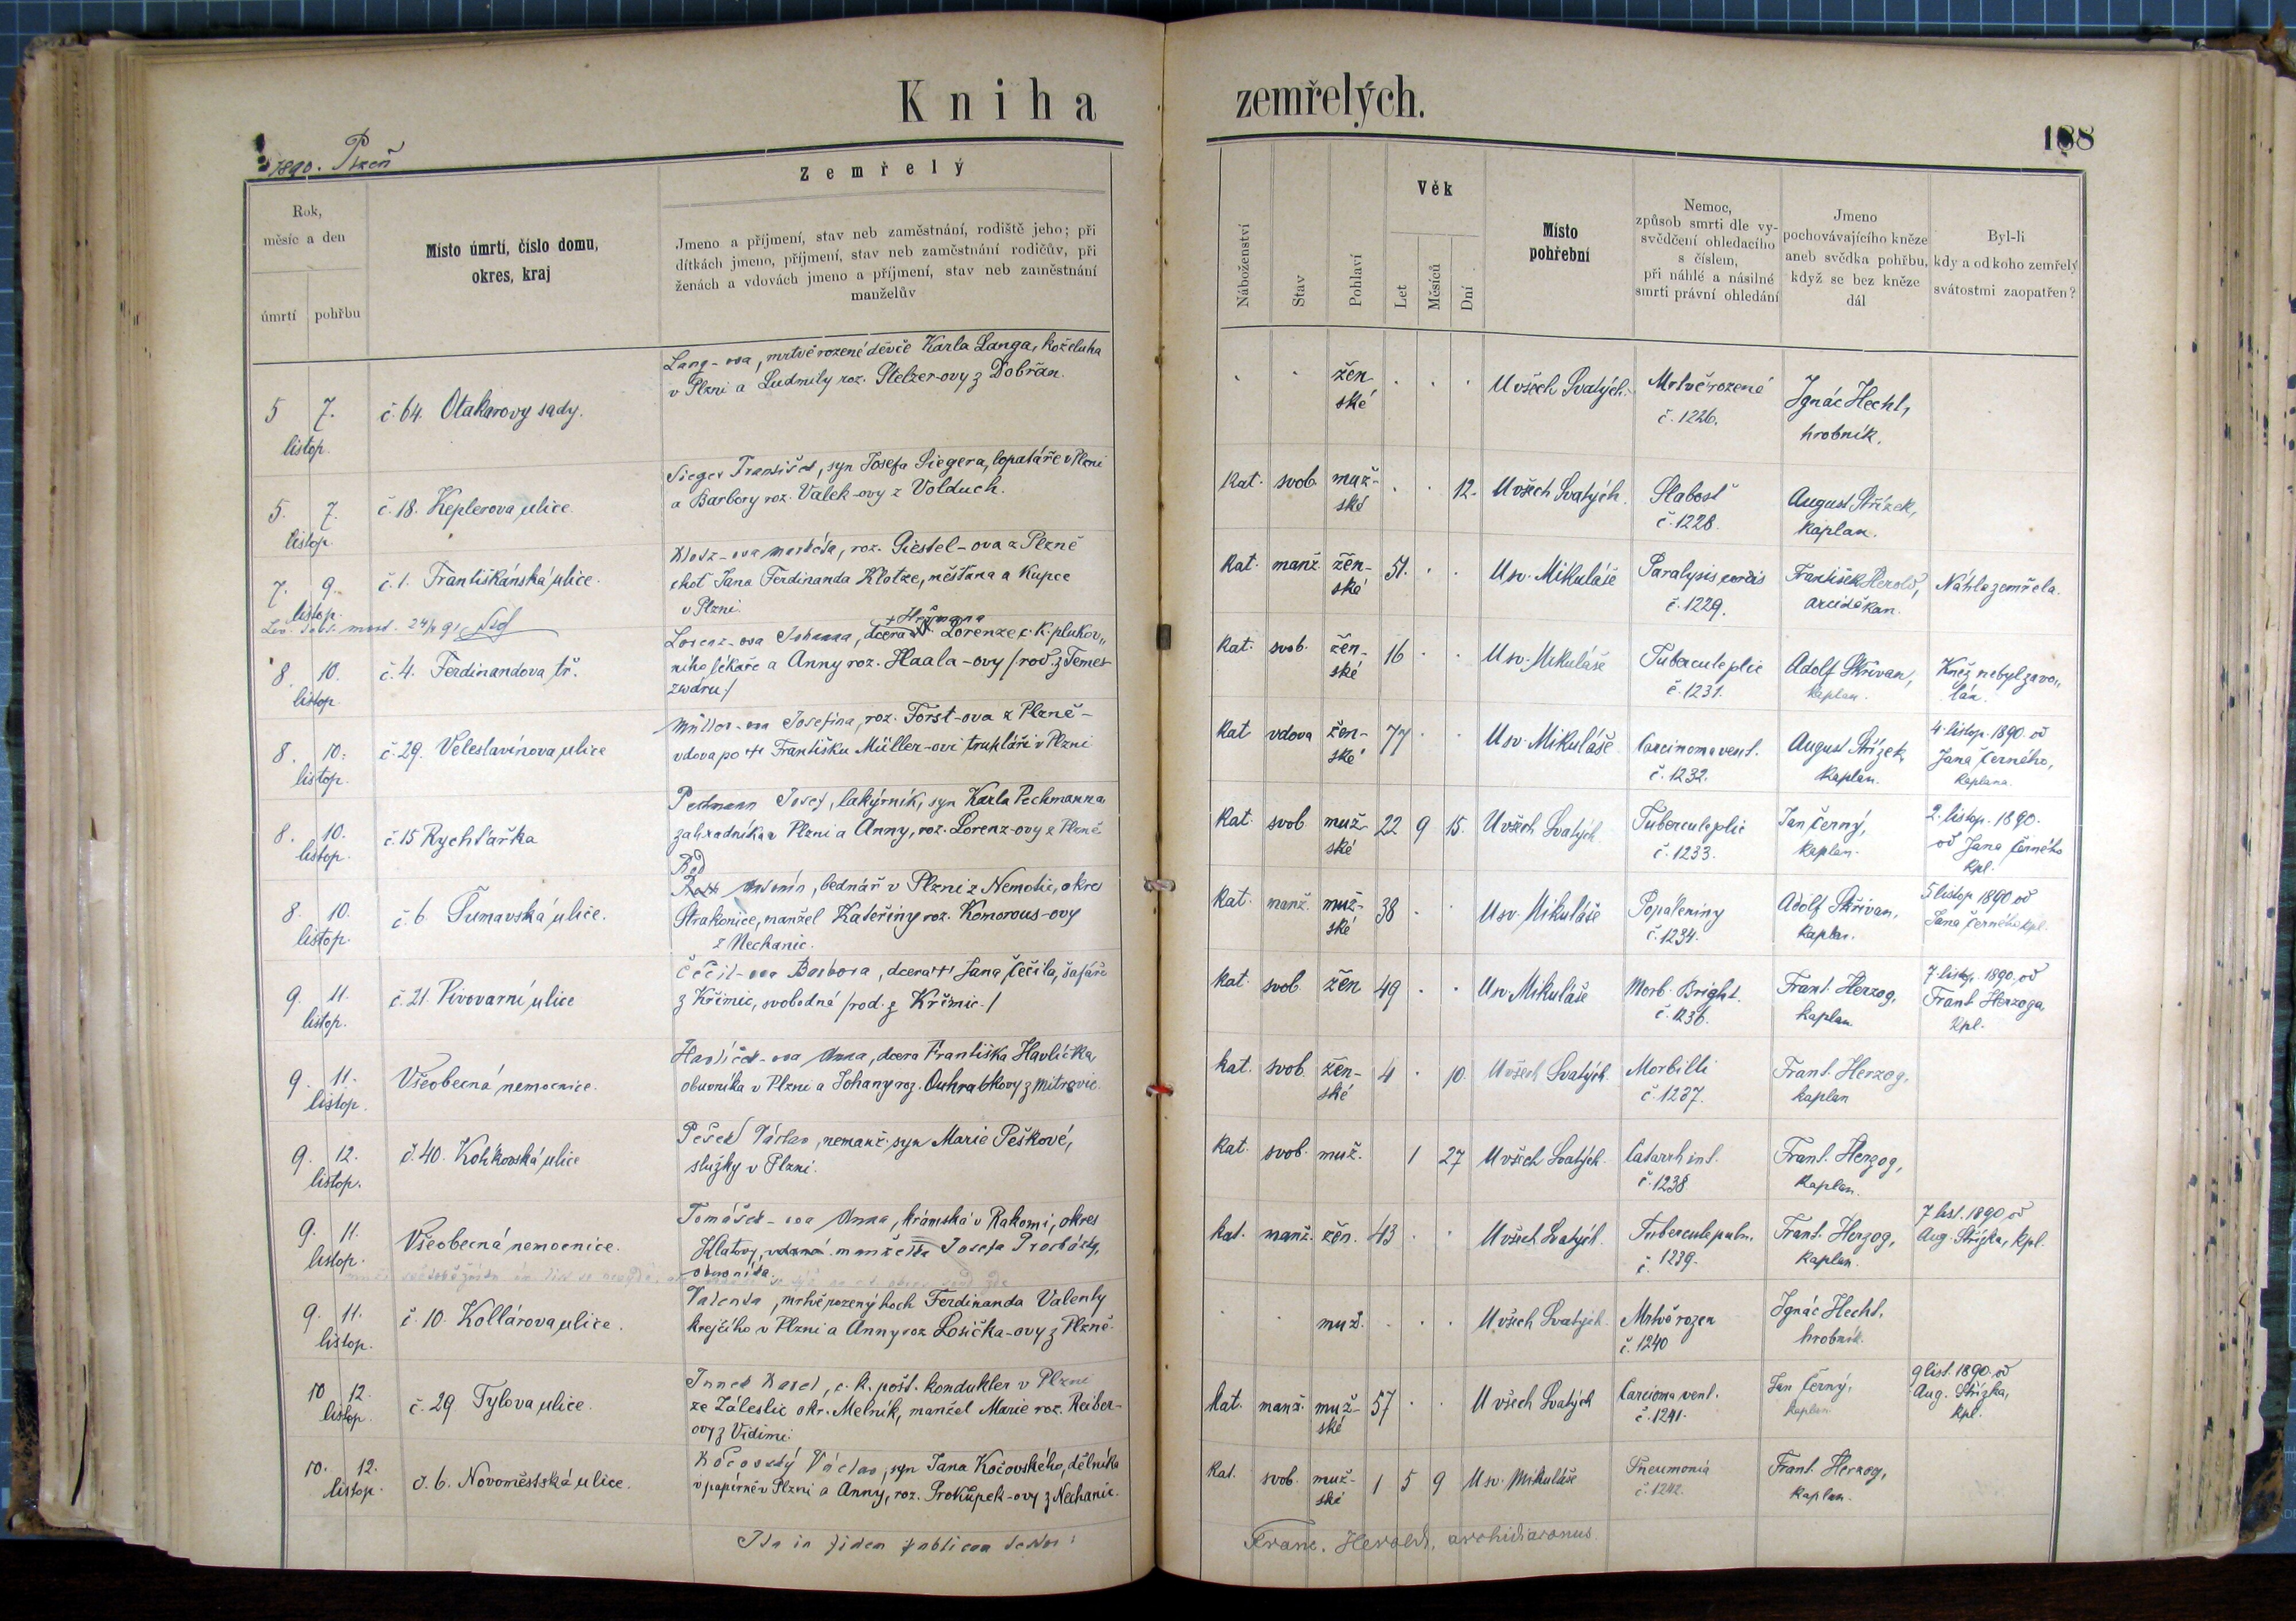 Kniha zemřelých.
188
1890. Plzeň
Zemřelý
Rok,
měsíc a den
úmrtí
pohřbu
Místo úmrtí, číslo domu,
okres, kraj
Jmeno a příjmení, stav neb zaměstnání, rodiště jeho; při
dítkách jmeno, příjmení, stav neb zaměstnání rodičův, při
ženách a vdovách jmeno a příjmení, stav neb zaměstnání
manželův
Náboženství
Stav
Pohlaví
Věk
Let
Měsíců
Dní
Místo
pohřební
Nemoc,
způsob smrti dle vy-
svědčení ohledacího
s číslem,
při náhlé a násilné
smrti právní ohledání
Jmeno
pochovávajícího kněze
aneb svědka pohřbu,
když se bez kněze
dál
Byl-li
kdy a od koho zemřelý
svátostmi zaopatřen?
5 7.
listop.
č. 64. Otakarovy sady.
Lang-ova, mrtvě rozené děvče Karla Langa, koželuha
v Plzni a Ludmily roz. Stelzer-ovy z Dobřan.
žen-
ské
U všech Svatých.
Mrtvě rozené
č. 1226.
Ignác Hecht,
hrobník.
5. 7.
listop.
č. 18. Keplerova ulice.
Sieger František, syn Josefa Siegera, lopatáře v Plzni
a Barbory roz. Valek-ovy z Volduch.
Kat. svob. muž-
ské
12.
U všech Svatých.
Slabost
č. 1228.
August Střízek,
kaplan.
7. 9.
listop.
č. 1. Františkánská ulice.
Klotz-ova Markéta, roz. Giestel-ova z Plzně
chot Jana Ferdinanda Klotze, měšťana a kupce
v Plzni.
Kat. manž. žen-
ské
51.
U sv. Mikuláše
Paralysis cordis
č. 1229.
František Herold,
arciděkan.
Náhle zemřela.
8. 10.
listop.
č. 4. Ferdinandova tř.
+ Heřmana
Lorenz-ova Johanna, dcera Lorenze c. k. plukov„
ního lékaře a Anny roz. Haala-ovy /rod. z Temes-
zwáru./
Kat. svob. žen-
ské
16
U sv. Mikuláše
Tubercule plic
č. 1231.
Adolf Skřivan,
kaplan.
Kněz nebyl zavo„
lán.
8. 10.
listop.
č. 29. Veleslavínova ulice
Müller-ova Josefina, roz. Forst-ova z Plzně-
vdova po + Františku Müller-ovi truhláři v Plzni
Kat vdova žen-
ské
77
U sv. Mikuláše.
Carcinoma vent.
č. 1232.
August Střízek,
kaplan.
4. listop. 1890. od
Jana Černého,
kaplana.
8. 10.
listop.
č. 15 Rychtařka
Pechmann Josef, lakýrník, syn Karla Pechmanna
zahradníka v Plzni a Anny, roz. Lorenz-ovy z Plzně.
Kat. svob. muž-
ské
22 9 15.
U všech Svatých.
Tubercule plic
č. 1233.
Jan Černý,
kaplan.
2. listop. 1890.
od Jana Černého
kpl.
8. 10.
listop.
č. 6. Šumavská ulice.
Antonín, bednář v Plzni z Nemotic, okres
Strakonice, manžel Kateřiny roz. Komorous-ovy
z Nechanic.
Kat. manž. muž-
ské
38
U sv. Mikuláše
Popáleniny
č. 1234.
Adolf Skřivan,
kaplan.
5 listop 1890 od
Jana Černého kpl.
9. 11.
listop.
č. 21. Pivovarní ulice
Čečil-ova Barbora, dcera + Jana Čečila, šafáře
z Křimic, svobodná /rod. z Křimic./
Kat. svob. žen
49
U sv. Mikuláše
Morb. Bright.
č. 1236.
Frant. Herzog,
kaplan
7. listop. 1890. od
Frant Herzoga,
kpl.
9. 11.
listop.
Všeobecná nemocnice.
Havlíček-ova Anna, dcera Františka Havlíčka,
obuvníka v Plzni a Johany roz. Ouhrabkovy z Mitrovic.
kat. svob. žen-
ské
4 10.
U všech Svatých.
Morbilli
č. 1237.
Frant. Herzog,
kaplan
9. 12.
listop.
č. 40. Kotkovská ulice
Pešek Václav, nemanž. syn Marie Peškové,
služky v Plzni.
Kat. svob. muž.
1 27
U všech Svatých.
Catarrh int.
č. 1238.
Frant. Herzog,
kaplan.
9. 11.
listop.
Všeobecná nemocnice.
Tomášek-ova Anna, krámská v Rakomi, okres
Klatovy, manželka Josefa
obuvníka.
kat. manž. žen.
43
U všech Svatých.
Tubercule pulm.
č. 1239.
Frant. Herzog,
kaplan.
7 list. 1890. od
Aug. Střízka, kpl.
9. 11.
listop.
č. 10. Kollárova ulice.
Valenta, mrtvě rozený hoch Ferdinanda Valenty
krejčího v Plzni a Anny roz Losička-ovy z Plzně.
muž.
U všech Svatých.
Mrtvě rozen
č. 1240
Ignác Hecht,
hrobník.
10 12.
listop.
č. 29 Tylova ulice.
Karel, c. k. pošt. kondukter v Plzni
ze Záleslic okr. Melník, manžel Marie roz. Reiber-
ovy z Vidimi.
Kat. manž. muž-
ské
57
U všech Svatých
Carcioma vent.
č. 1241.
Jan Černý,
kaplan
9 list. 1890. od
Aug. Střízka,
kpl.
10. 12.
listop.
č. 6. Novoměstská ulice.
Kočovský Václav, syn Jana Kočovského, dělníka
v papírně v Plzni a Anny, roz. Prokůpek-ovy z Nechanic.
Kat. svob. muž-
ské
1 5 9
U sv. Mikuláše
Pneumonia
č. 1242.
Frant. Herzog,
kaplan.
Ita in fidem publicam testor:
Franc. Herold, archidiaconus.